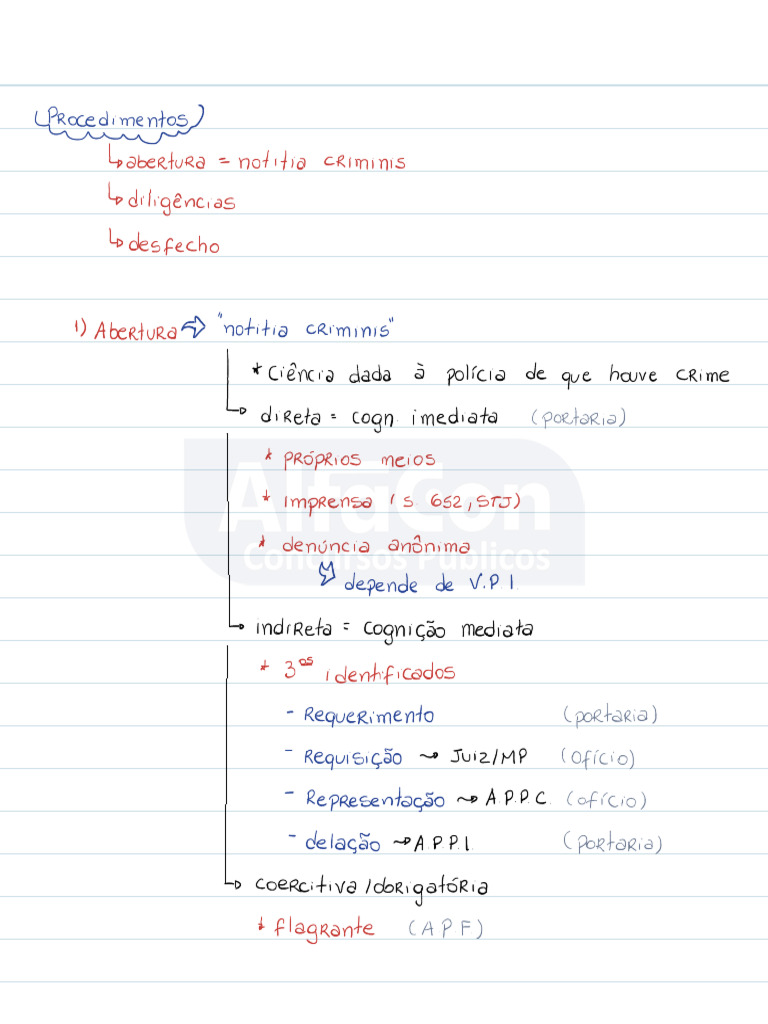 Procedimentos
↳ abertura = notitia criminis
↳ diligências
↳ desfecho
1) Abertura ⇨ "notitia criminis"
* Ciência dada à polícia de que houve crime
↳ direta = cogn. imediata (portaria)
* próprios meios
* imprensa (s 652, STJ)
AlfaCon
* denúncia anônima
Concursos Públicos
depende de V.P.I.
↳ indireta = cognição mediata
* 3ºs identificados
- Requerimento (portaria)
- Requisição → Juiz/MP (ofício)
- Representação → A.P.P.C. (ofício)
- delação → A.P.P.I. (portaria)
↳ coercitiva/obrigatória
* flagrante (A P F)